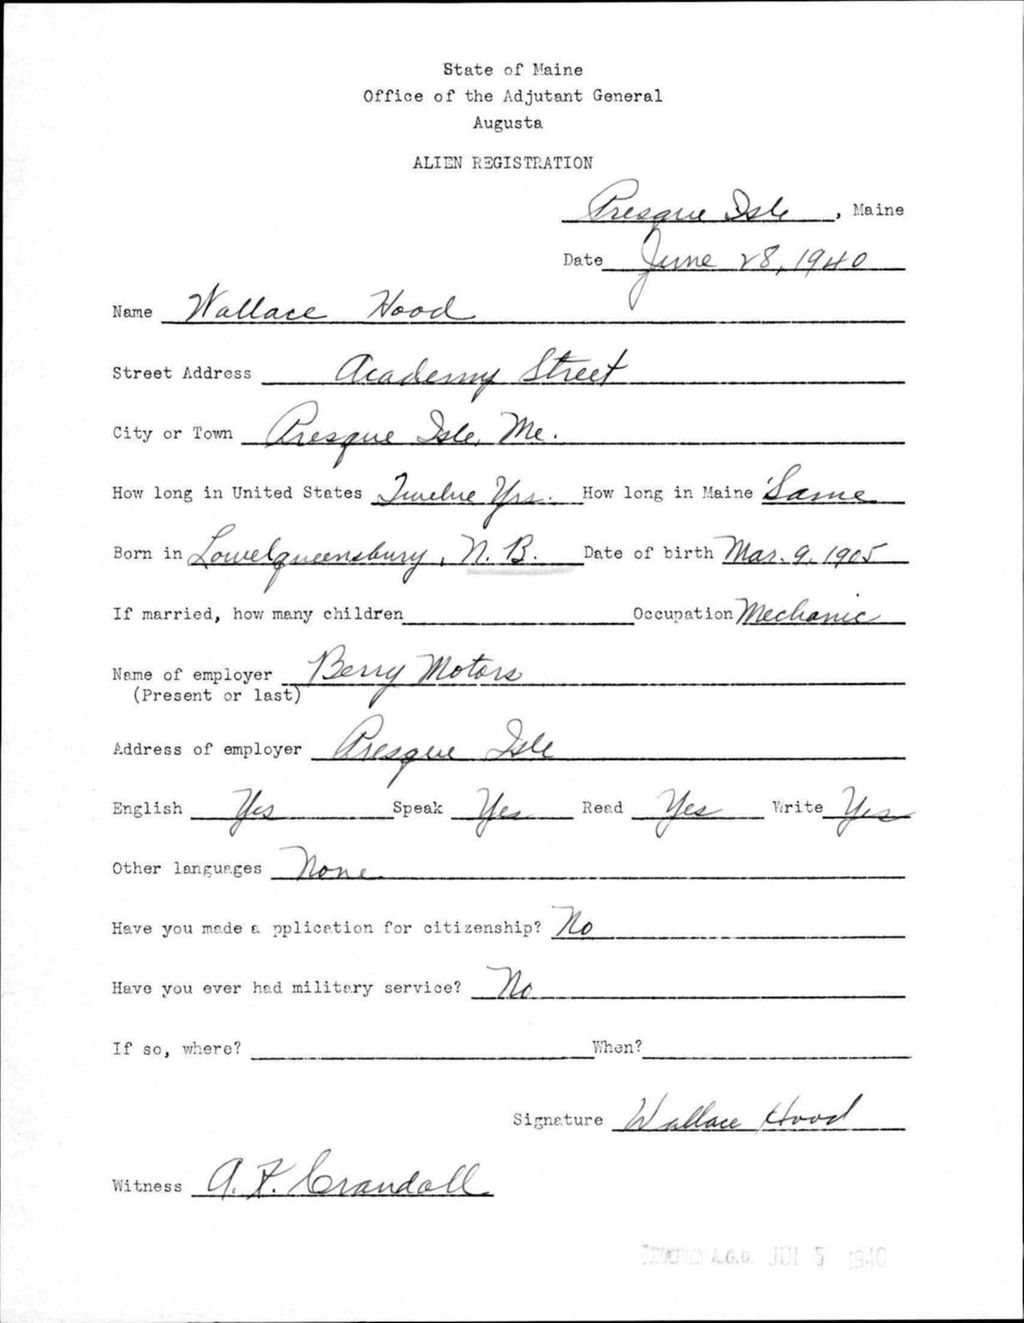 State of Maine
Office of the Adjutant General
Augusta
ALIEN REGISTRATION
Presque Isle, Maine
Date June 28, 1940
Name Wallace Hood
Street Address Academy Street
City or Town Presque Isle, Me.
How long in United States Twelve Yrs. How long in Maine Same
Born in Lowelqueensbury, N. B. Date of birth Mar. 9, 1905
If married, how many children Occupation Mechanic
Name of employer Berry Motors
(Present or last)
Address of employer Presque Isle
English Yes Speak Yes Read Yes Write Yes
Other languages None
Have you made a pplication for citizenship? No
Have you ever had military service? No
If so, where? When?
Signature Wallace Hood
Witness A. F. Crandall
A.G.O. JUL 5 1940